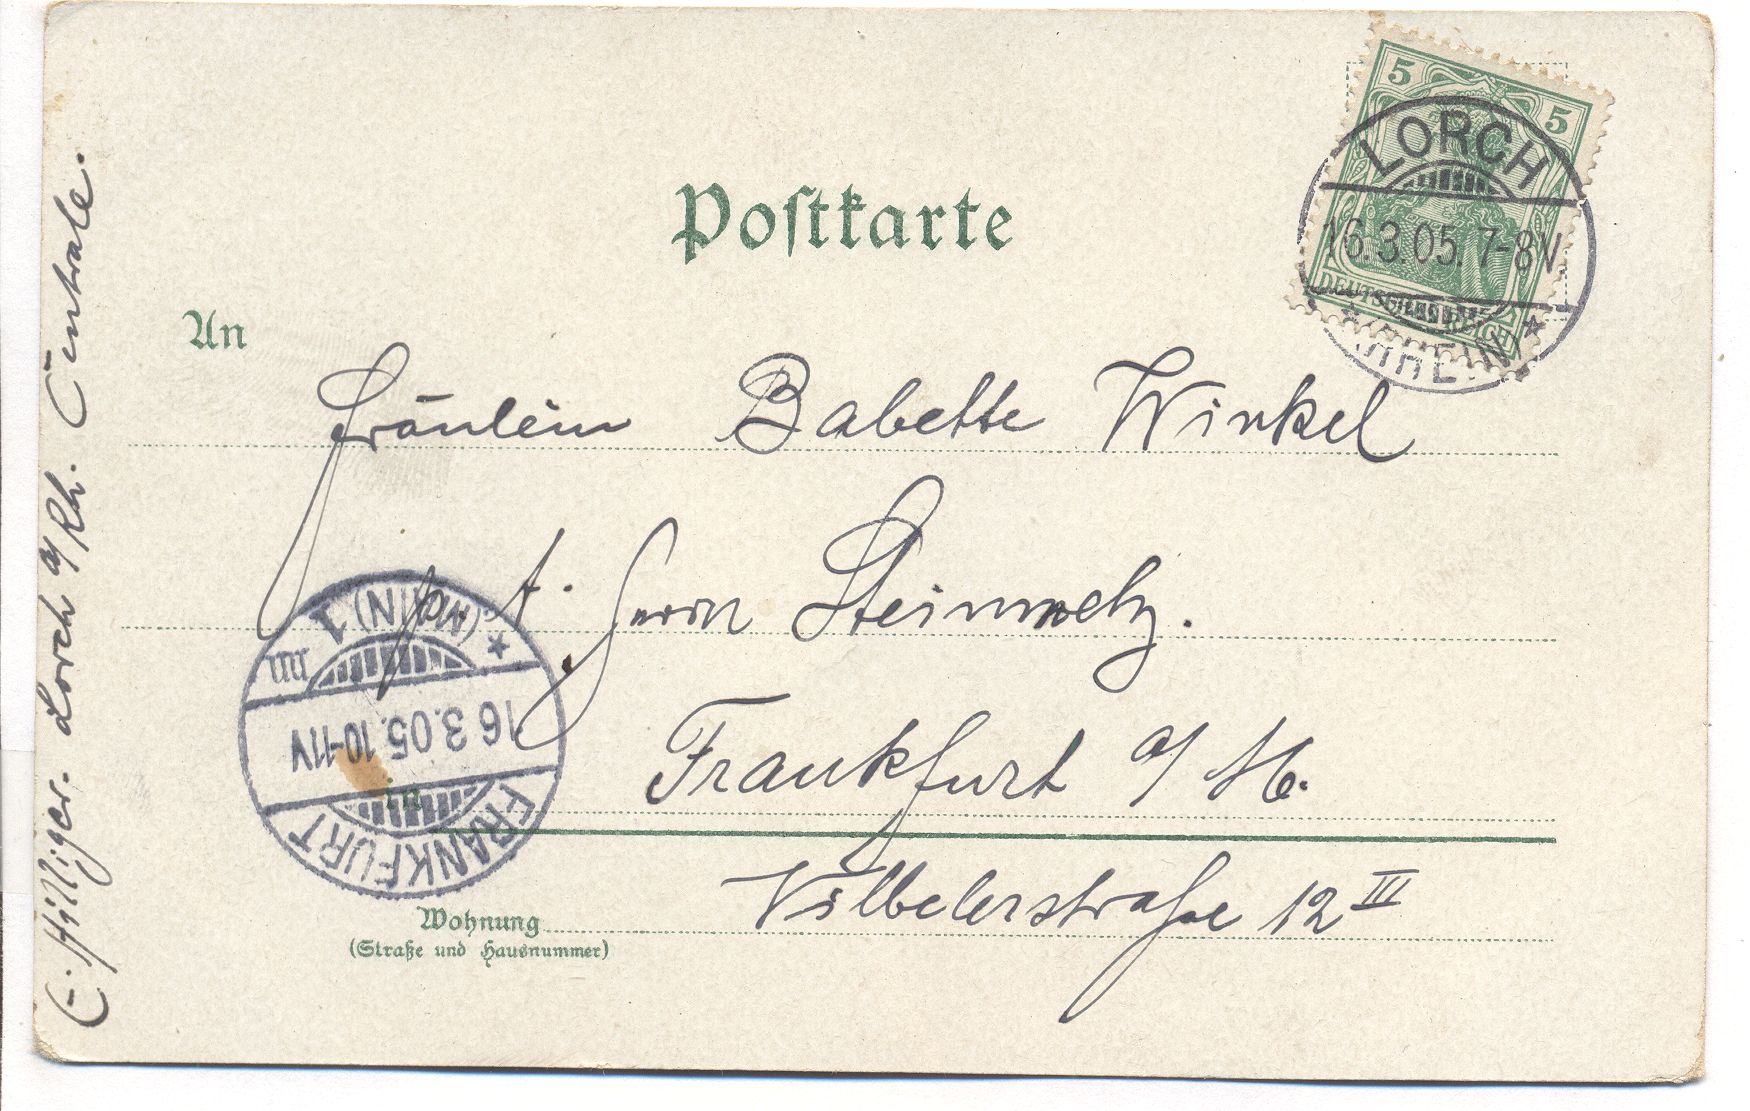 Postkarte
5 5
LORCH
16.3.05. 7-8V.
DEUTSCHES REICH
* RHEIN *
An
Fräulein Babette Winkel
p. A. Herrn Steinmetz.
in Frankfurt a/M.
Wohnung Vilbelerstraße 12 III
(Straße und Hausnummer)
* (MAIN) 1
16.3.05. 10-11V
FRANKFURT
E. Hilliger. Lorch a/Rh. Centrale.